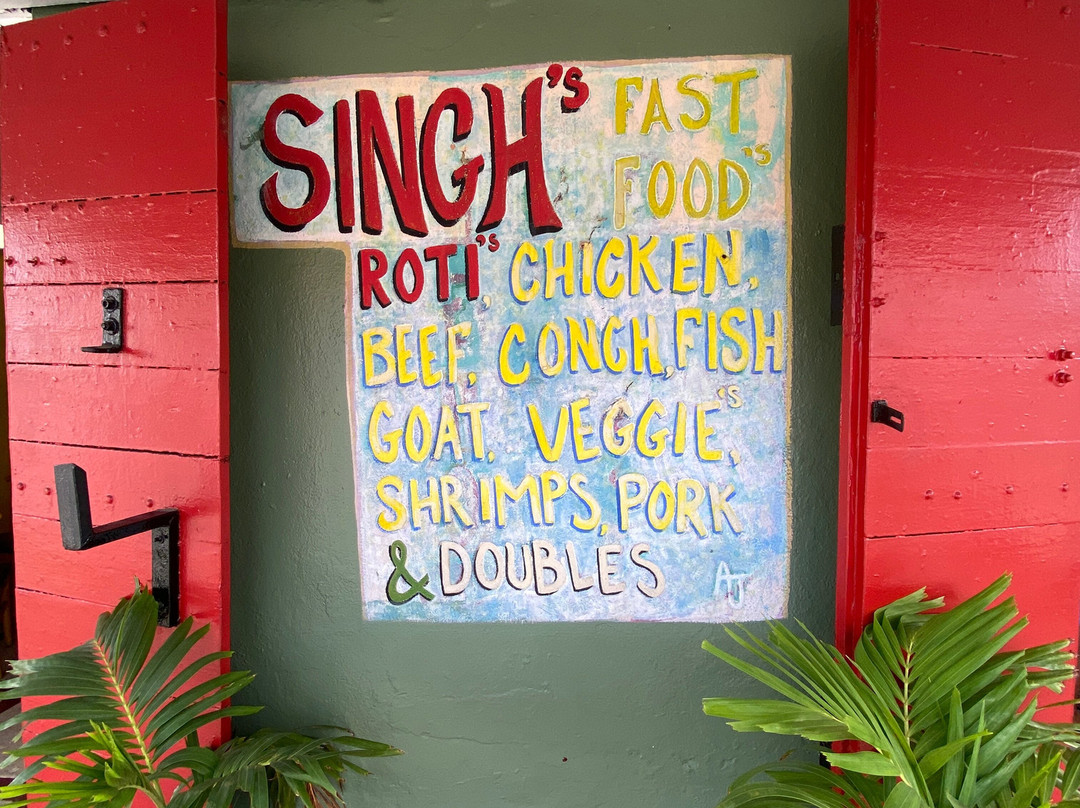 SINGH's FAST
FOOD's
ROTI's, CHICKEN,
BEEF, CONCH, FISH
GOAT, VEGGIE's,
SHRIMPS, PORK
& DOUBLES
AJ